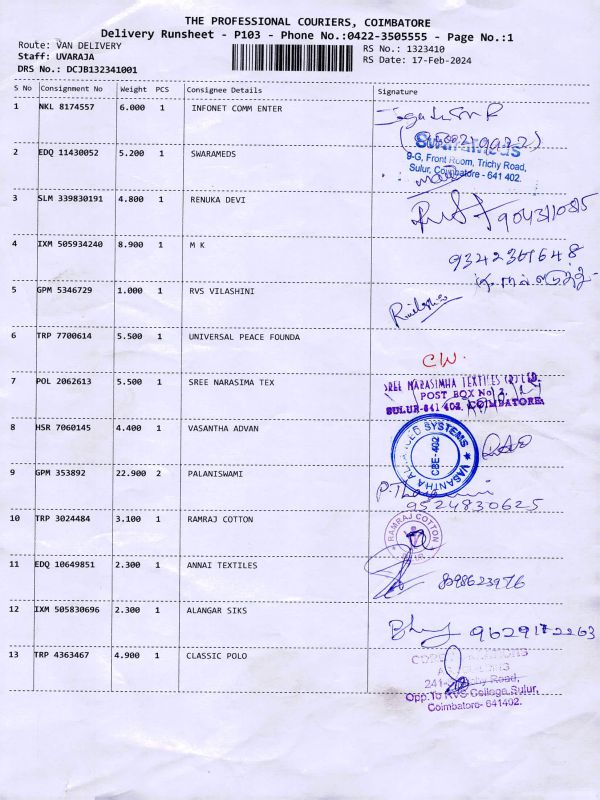 THE PROFESSIONAL COURIERS, COIMBATORE
Delivery Runsheet - P103 - Phone No.:0422-3505555 - Page No.:1
Route: VAN DELIVERY
RS No.: 1323410
Staff: UVARAJA
RS Date: 17-Feb-2024
DRS No.: DCJB132341001
S No Consignment No Weight PCS Consignee Details Signature
1 NKL 8174557 6.000 1 INFONET COMM ENTER
2 EDQ 11430052 5.200 1 SWARAMEDS
9-G, Front Room, Trichy Road,
Sulur, Coimbatore - 641 402.
3 SLM 339830191 4.800 1 RENUKA DEVI
4 IXM 505934240 8.900 1 M K
5 GPM 5346729 1.000 1 RVS VILASHINI
6 TRP 7700614 5.500 1 UNIVERSAL PEACE FOUNDA
CW.
7 POL 2062613 5.500 1 SREE NARASIMA TEX
SREE NARASIMHA TEXTILES (P) LTD.
POST BOX No
SULUR-641 402, COIMBATORE
8 HSR 7060145 4.400 1 VASANTHA ADVAN
VASANTHA ADVANCED SYSTEMS
CBE-402
9 GPM 353892 22.900 2 PALANISWAMI
9524830625
10 TRP 3024484 3.100 1 RAMRAJ COTTON
RAMRAJ COTTON
11 EDQ 10649851 2.300 1 ANNAI TEXTILES
12 IXM 505830696 2.300 1 ALANGAR SIKS
13 TRP 4363467 4.900 1 CLASSIC POLO
Trichy Road,
Opp.To RVS College, Sulur,
Coimbatore- 641402.